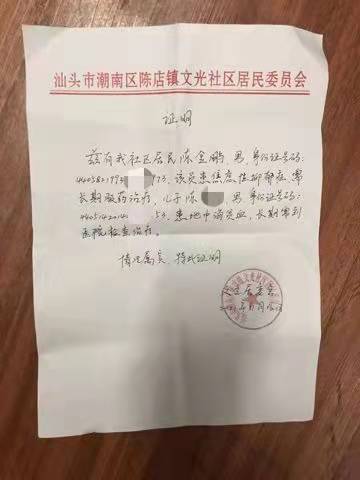 汕头市潮南区陈店镇文光社区居民委员会
证明
兹有我社区居民陈金鹏,男,身份证号码:
44058219930 973.该员患焦虑性抑郁症需
长期服药治疗,儿子陈 男,身份证号码:
4405142014 53.患地中海贫血,长期需到
医院检查治疗。
情况属实,特此证明